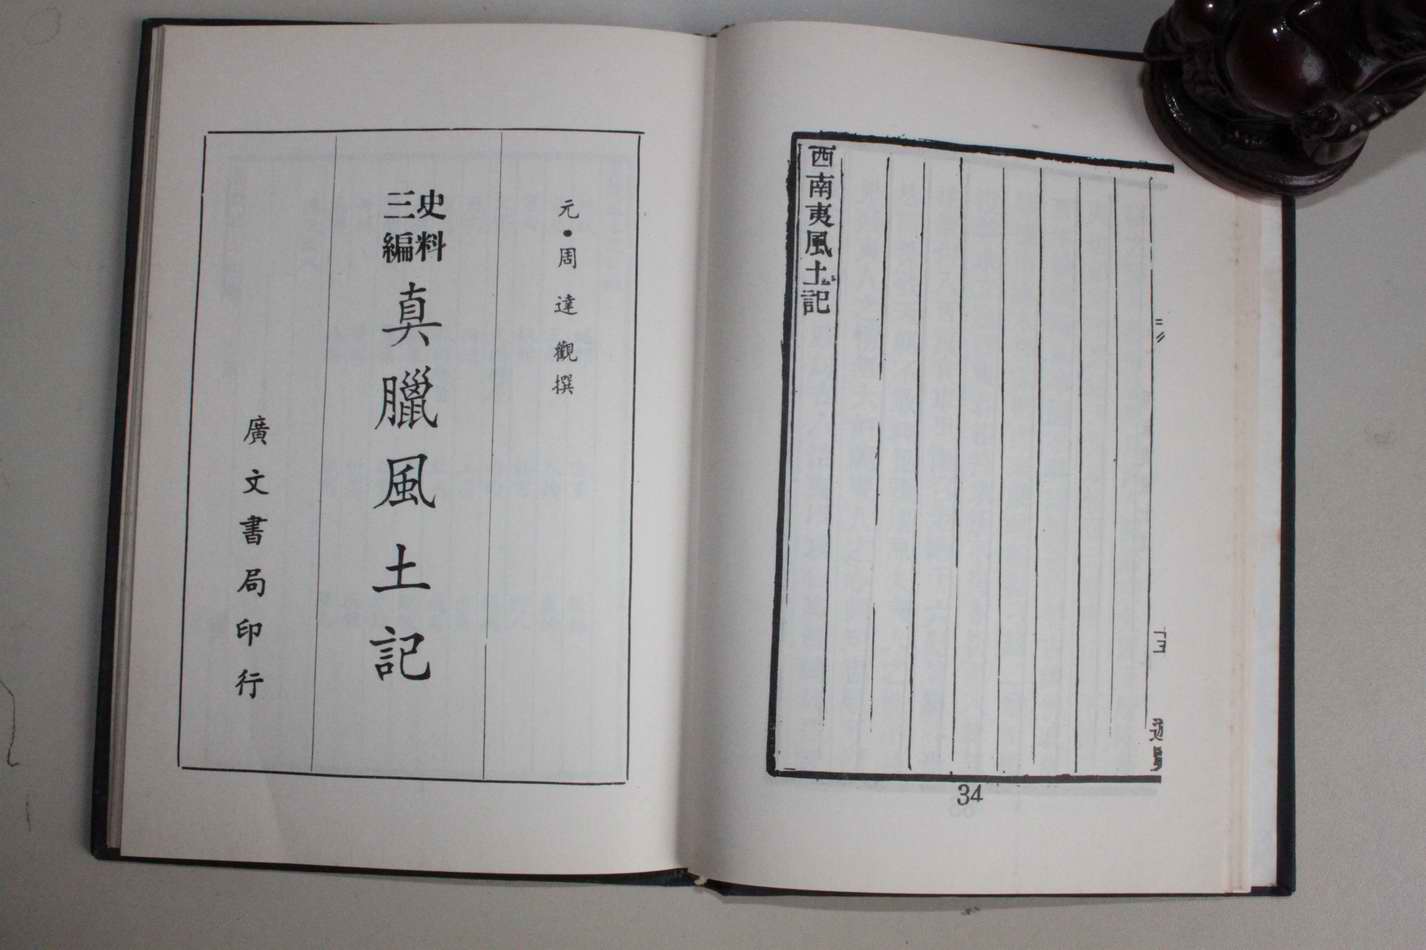 西南夷風土記
34
元•周達觀撰
史料
三編
真臘風土記
廣文書局印行